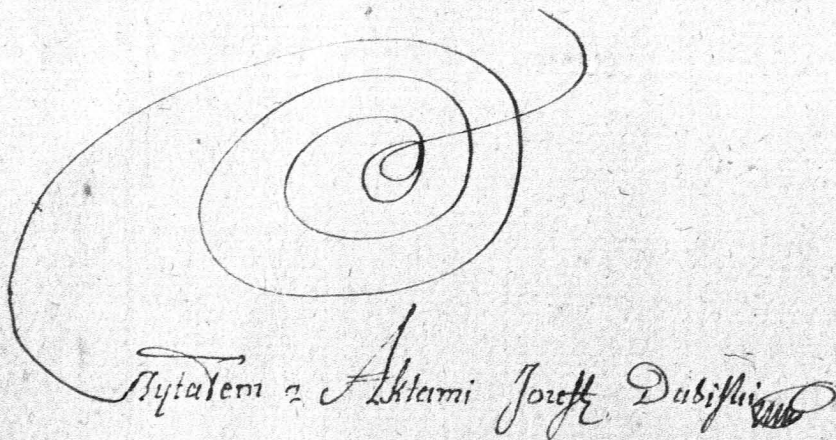 Czytałem z Aktami Jozeff Dubiski